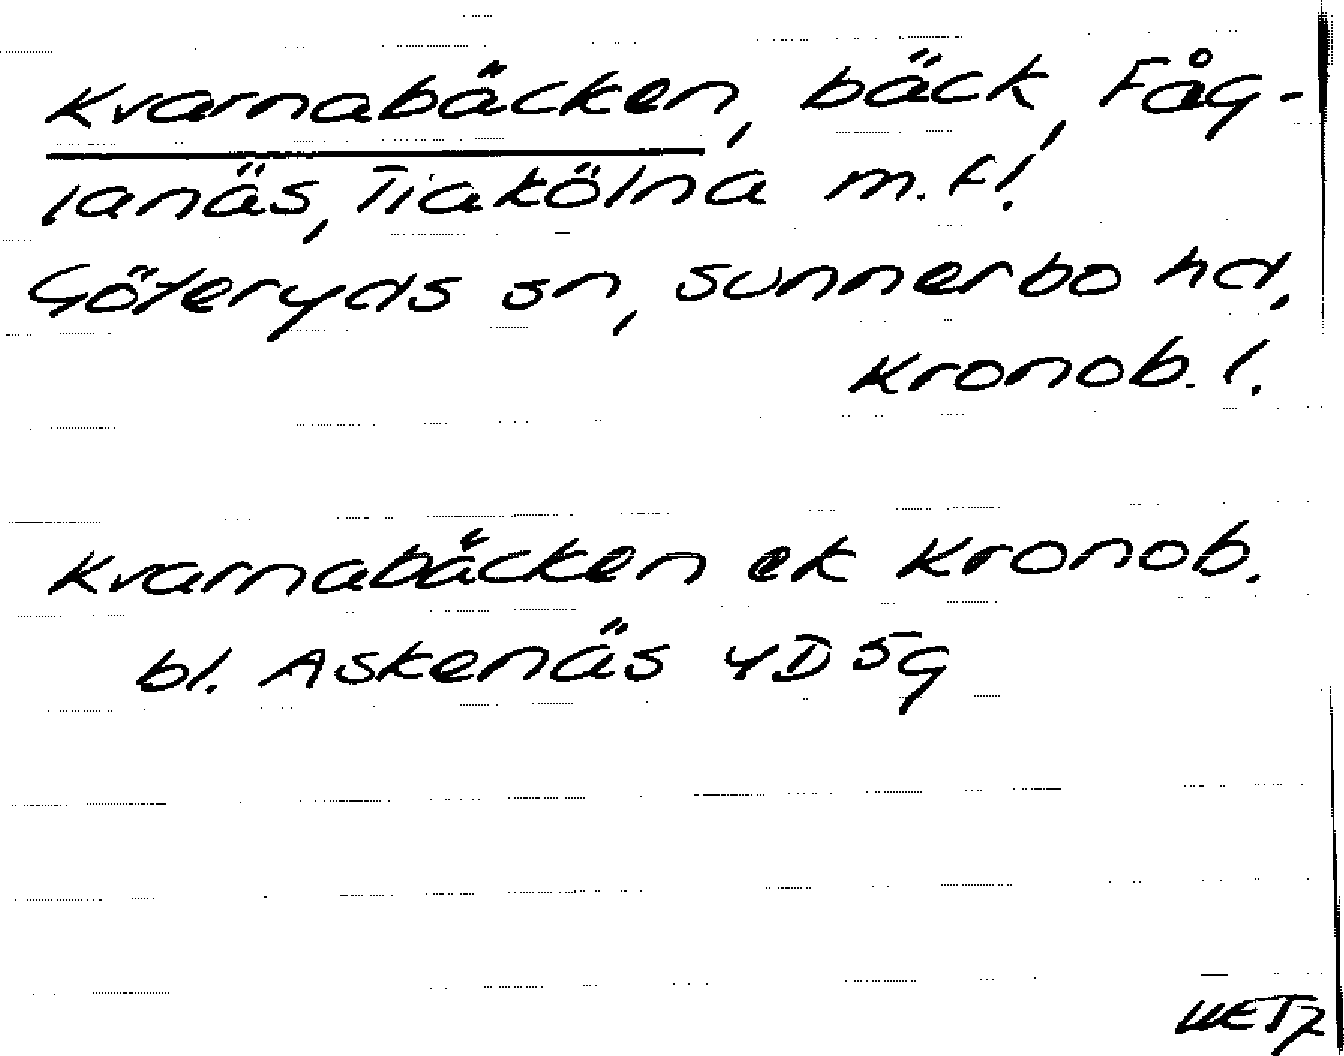 Kvarnabäcken, bäck, Fåg-
lanäs, Tiakölna m.fl.
Göteryds sn, Sunnerbo hd,
Kronob. l.
Kvarnabäcken ek Kronob.
bl. Askenäs 4D5g
WETZ